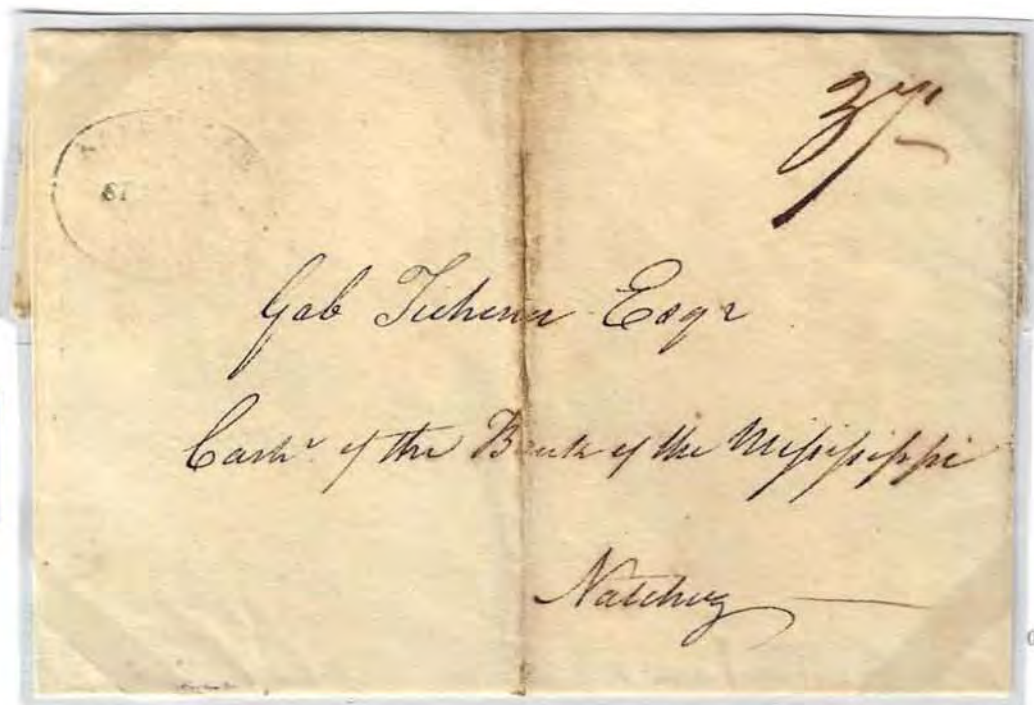 Gab Tichenor Esqr
Cashr of the Bank of the Mississippi
Natchez